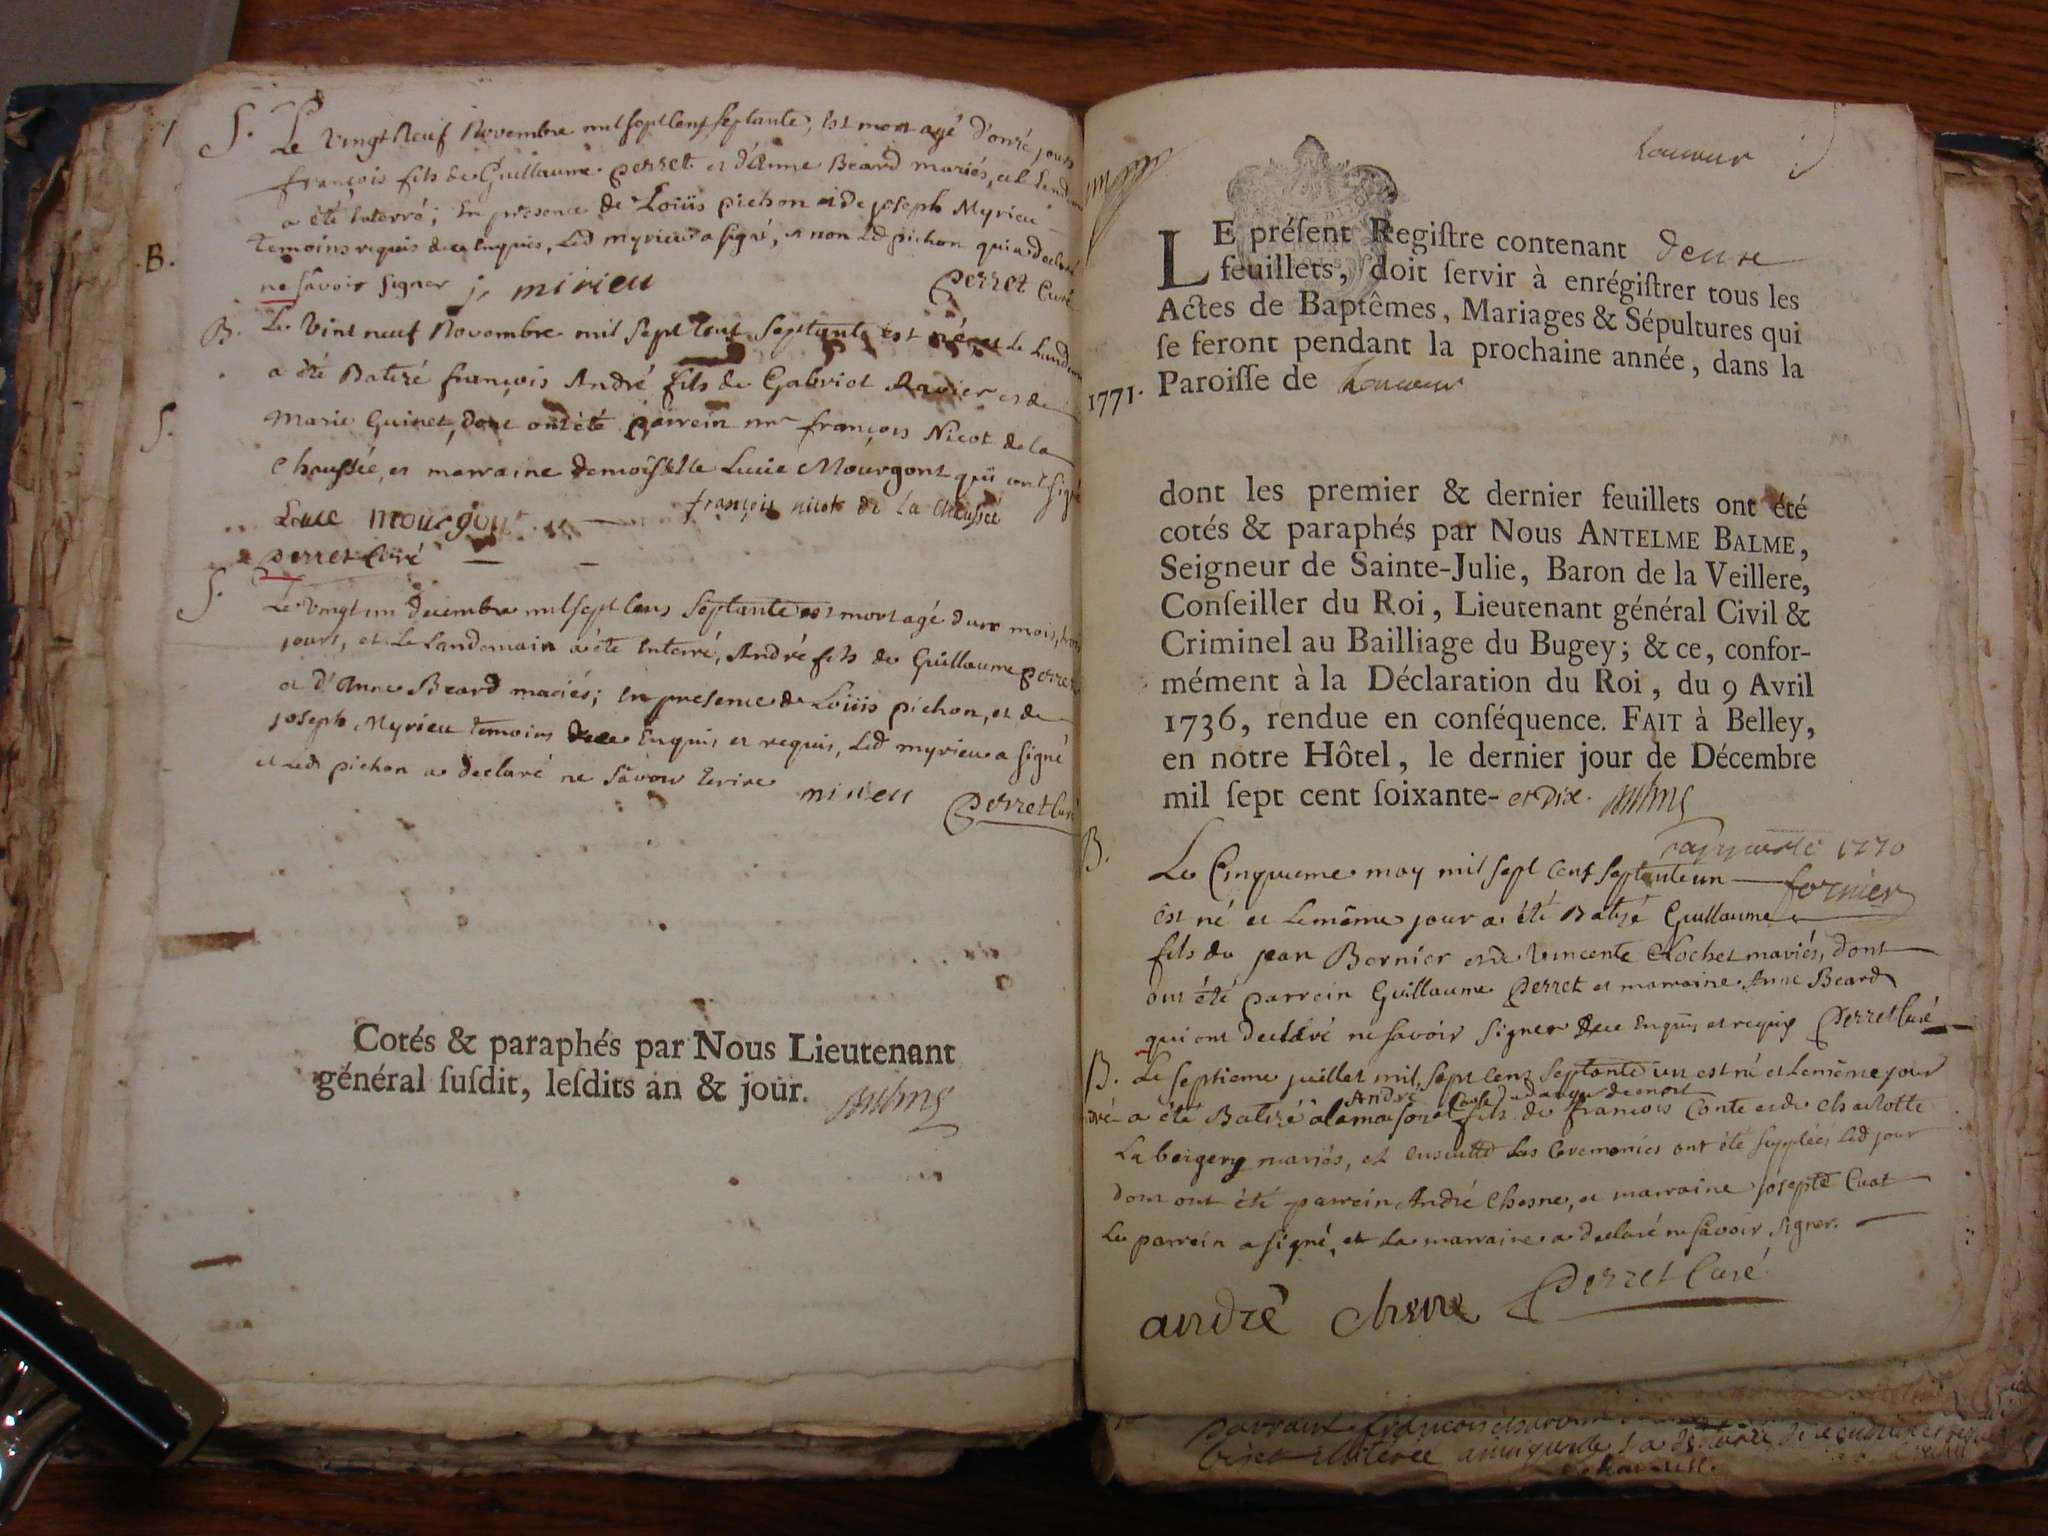 S. Le vingt Neuf Novembre mil sept Cent septante, est mort agé d'onze jours
françois fils de Guillaume perret et d'Anne Beard mariés, et le Lend
a été Enterré; En presence de Loüis pichon et de joseph Myrieu
temoins requis de ce Enquis, Led myrieu a signé, et non Led pichon qui a declaré
B.
ne savoir signer j. mirieu Perret Curé
B. Le vint neuf Novembre mil sept Cent septante est né et le Lendem
a été Batizé françois André fils de Gabriel Ravier et de
S.
Marie Guinet, dont ont été parrein mr françois Nicot de la
Chaussée, et marraine demoiselle Lucie Mourgont qui ont signé
Luce mourgont françois nicot de la Chaussée
perret Curé
S. Le vingt un decembre mil sept Cens septante est mort agé d'un mois,
jours, et Le Landemain a été Enterré, André fils de Guillaume perret
et d'Anne Beard mariés; En presence de Loüis pichon, et de
joseph Myrieu temoins de ce Enquis et requis, Led myrieu a signé
et Led pichon a declaré ne savoir Ecrire mirieu Perret Curé
Cotés & paraphés par Nous Lieutenant
général susdit, lesdits an & jour.
LE présent Registre contenant deux
feuillets, doit servir à enrégistrer tous les
Actes de Baptêmes, Mariages & Sépultures qui
se feront pendant la prochaine année, dans la
1771. Paroisse de
dont les premier & dernier feuillets ont été
cotés & paraphés par Nous ANTELME BALME,
Seigneur de Sainte-Julie, Baron de la Veillere,
Conseiller du Roi, Lieutenant général Civil &
Criminel au Bailliage du Bugey; & ce, confor-
mément à la Déclaration du Roi, du 9 Avril
1736, rendue en conséquence. FAIT à Belley,
en notre Hôtel, le dernier jour de Décembre
mil sept cent soixante- et Dix.
1770
B. Le Cinquieme may mil sept Cent septante un fornier
est né et le même jour a été Batizé Guillaume
fils de jean Bornier et de vincente Clochet mariés, dont
ont été parrein Guillaume Perret et marraine Anne Beard
qui ont declaré ne savoir signer de ce Enquis et requis Perret Curé
B. Le septieme juillet mil sept Cent septante un est né et le même jour
André Cause du danger de mort
dré a été Batizé a la maison et fils de françois Conte et de Charlotte
La beigery mariés, et ensuitte Les Ceremonies ont été supplées Led jour
dont ont été parrein André Chesne, et marraine josepte Cuat
Le parrein a signé, et La marraine a declaré ne savoir signer.
andrè chene Perret Curé